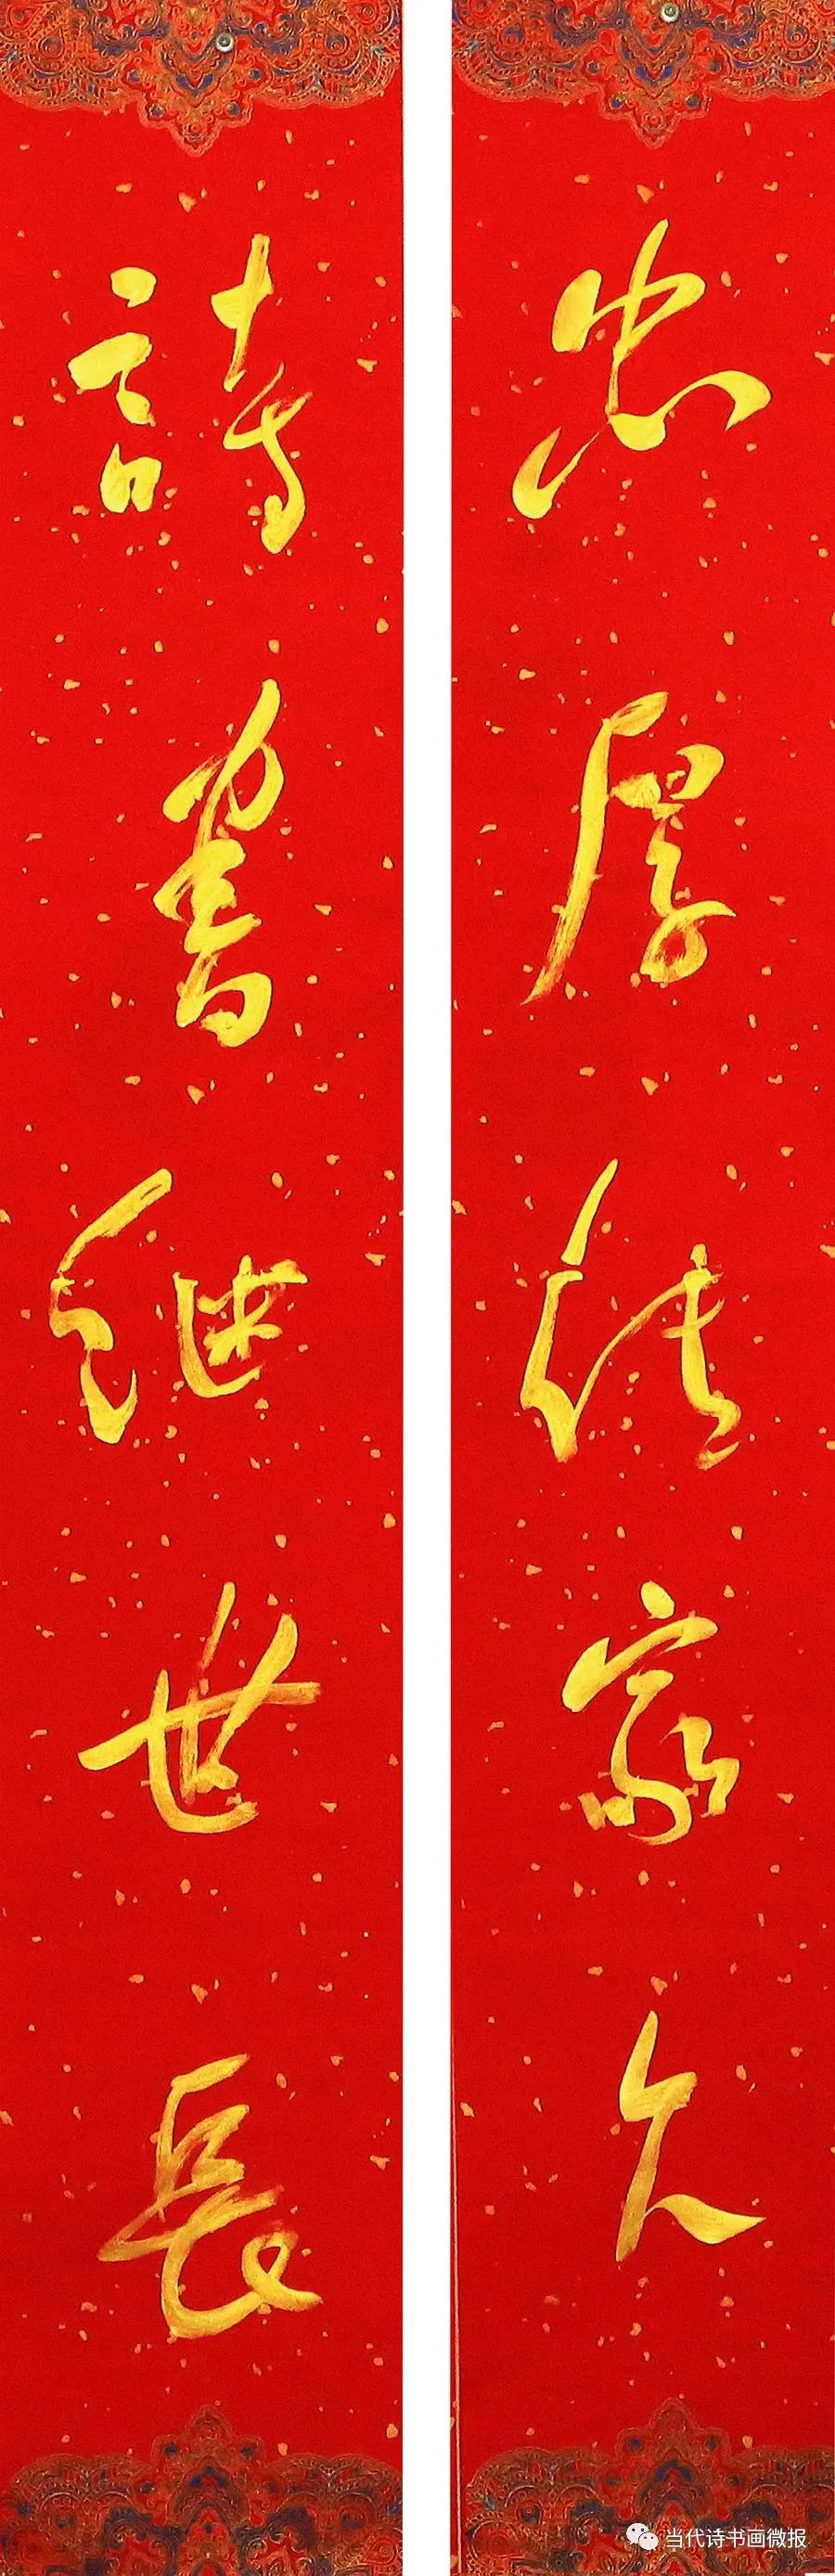 忠厚传家久
詩書继世長
当代诗书画微报